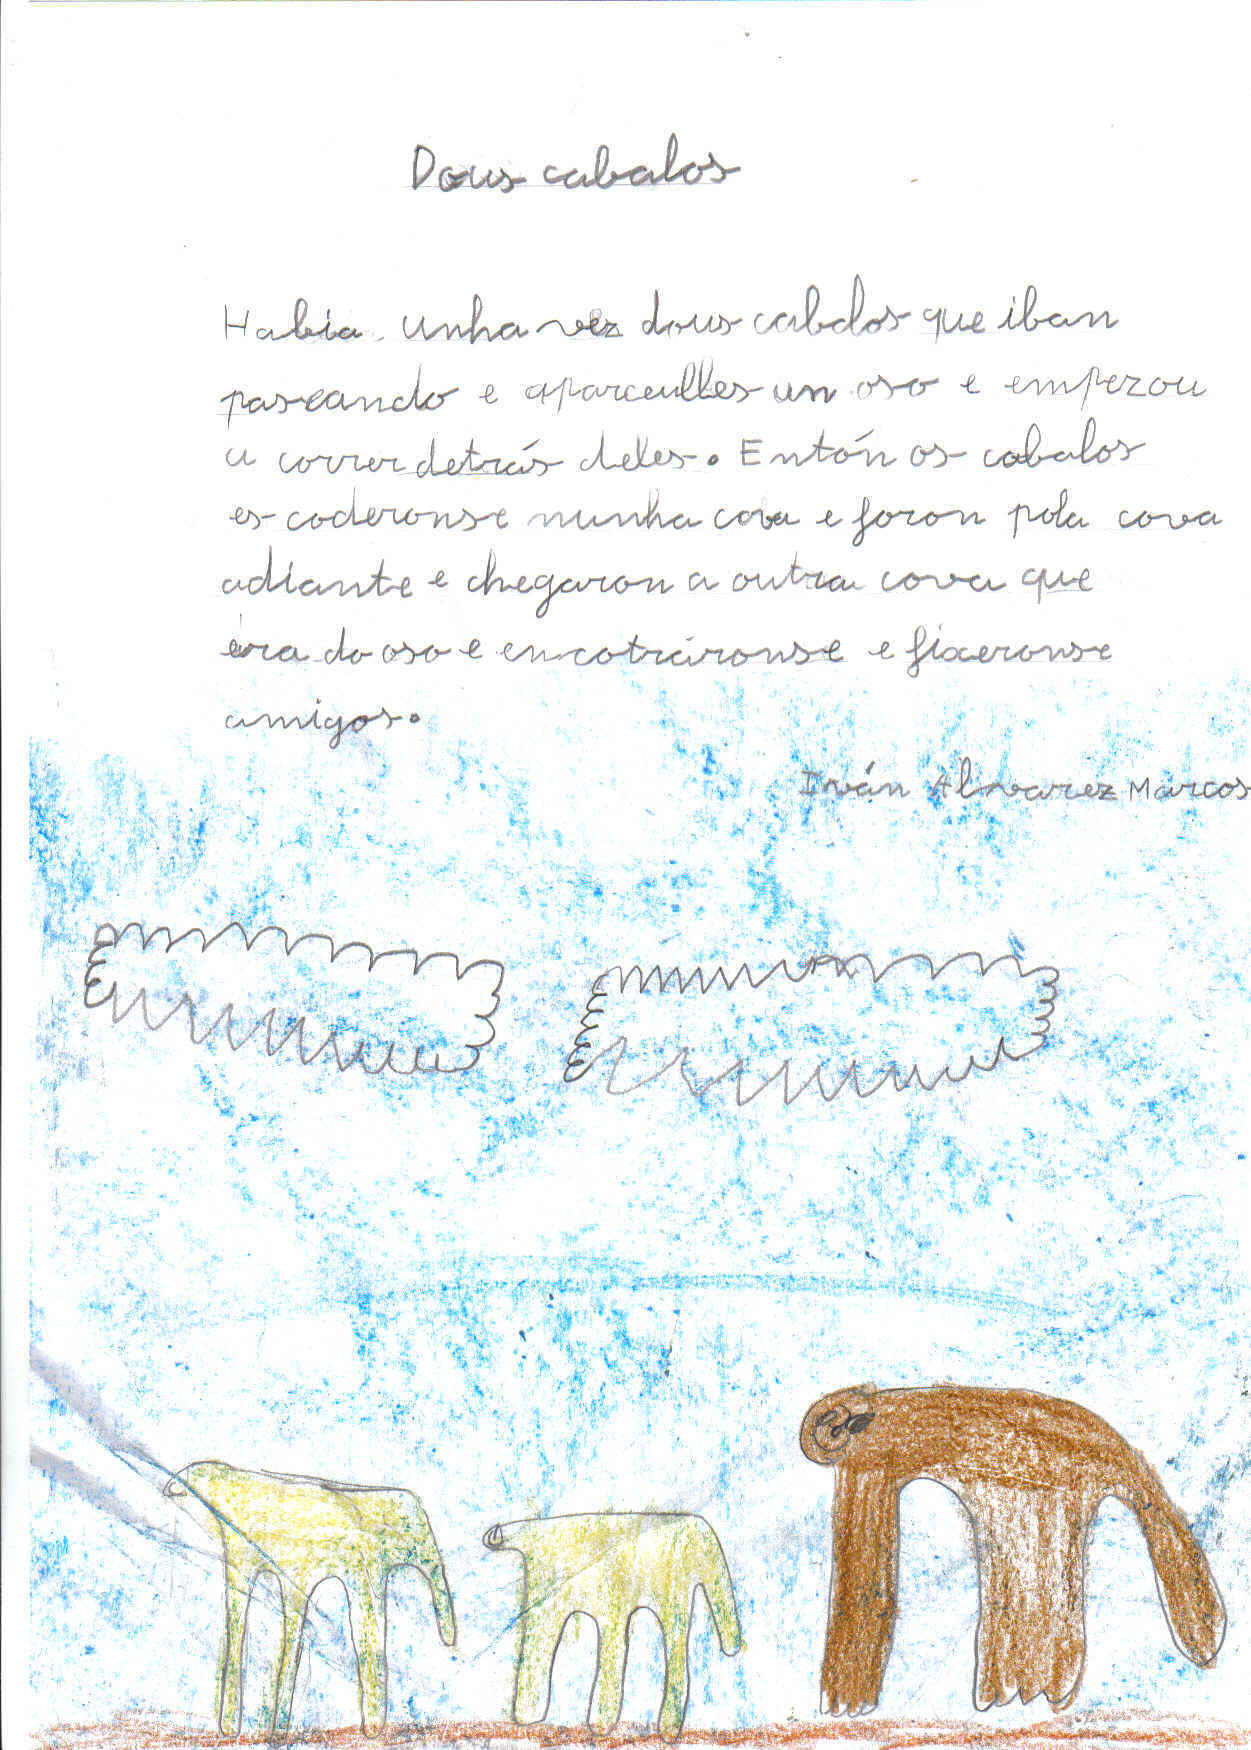 Dous cabalos
Habia unha vez dous cabalos que iban
paseando e aparceulles un oso e empezou
a correr detrás deles. Entón os cabalos
escoderonse nunha cova e foron pola cova
adiante e chegaron a outra cova que
era do oso e encotráronse e fixeronse
amigos.
Iván Alvarez Marcos